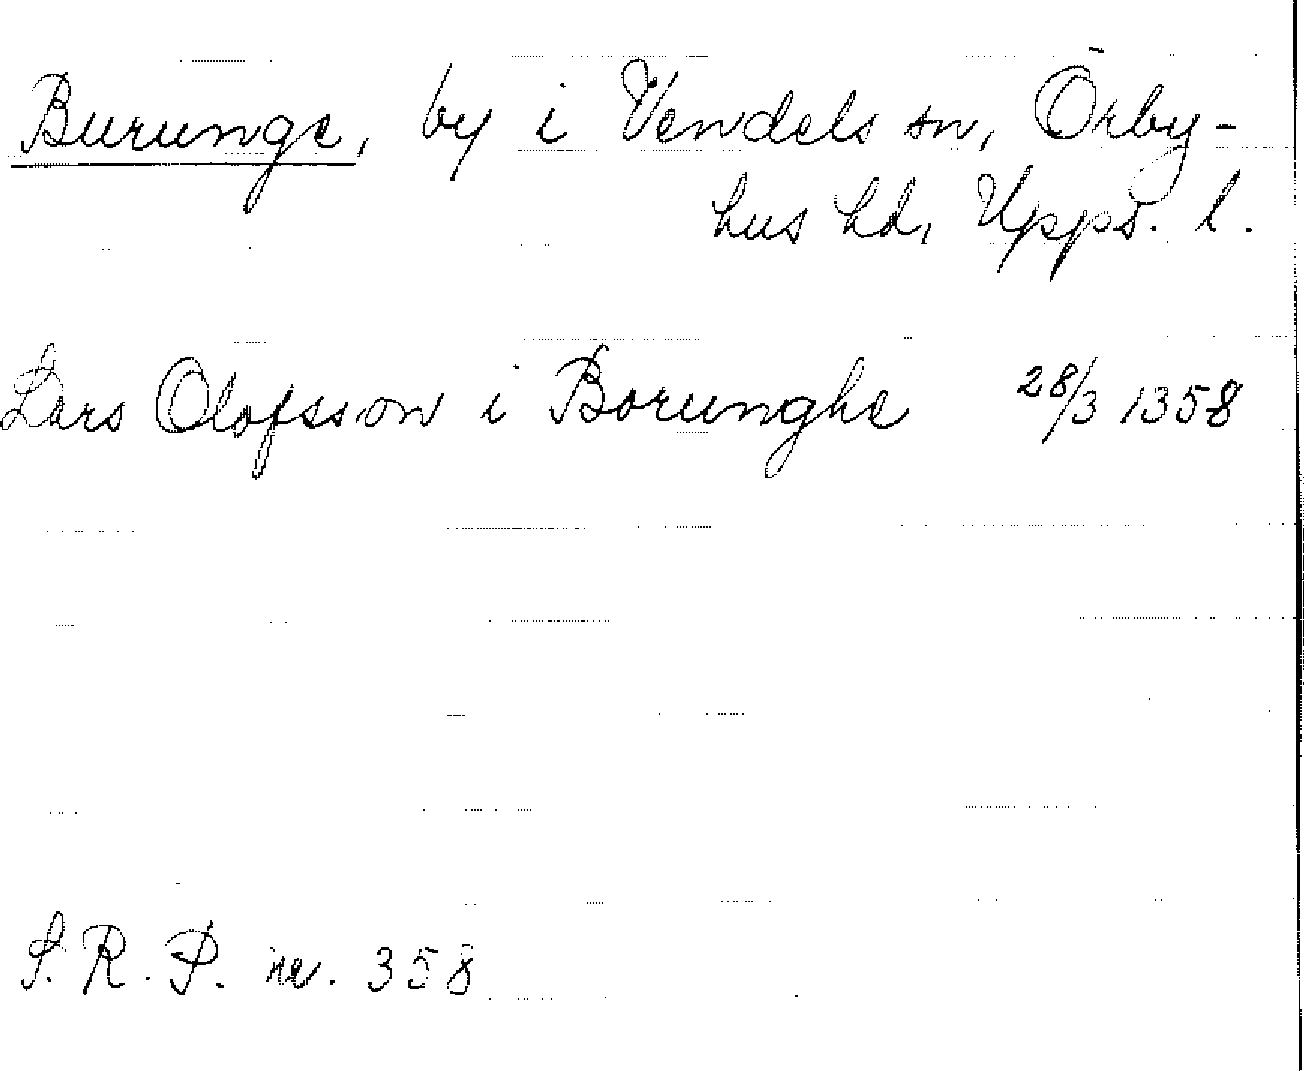 Burunge, by i Vendels sn, Örby-
hus hd, Upps. l.
Lars Olofsson i Borunghe 28/3 1358
S. R. P. nr. 358